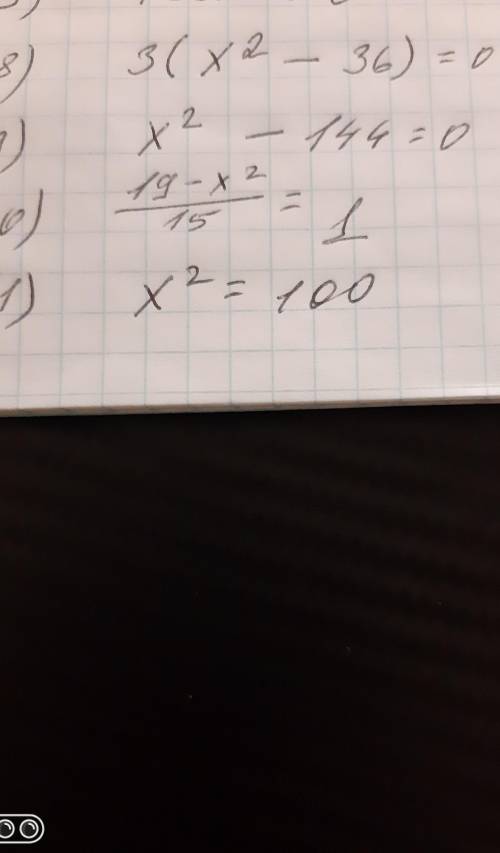 8) 3(x² - 36) = 0
) x² - 144 = 0
0) (19 - x²)/15 = 1
1) x² = 100